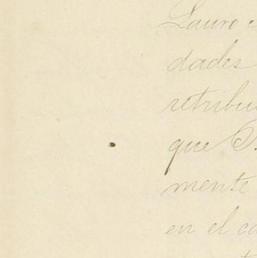 Lauro
dades
retribu
que
mente
en el co